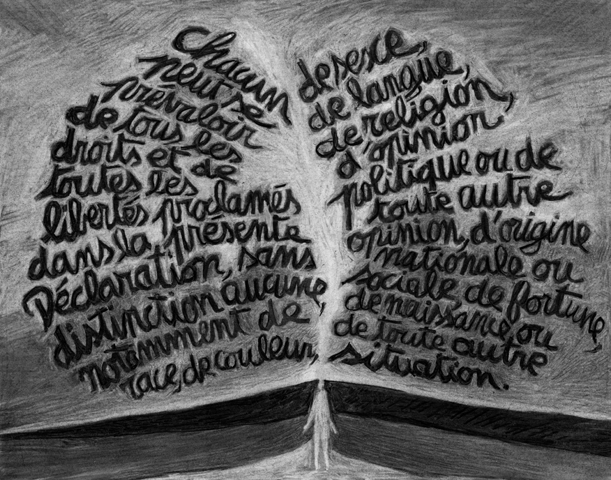 Chacun
peut se
prévaloir
de tous les
droits et de
toutes les
libertés proclamés
dans la présente
Déclaration, sans
distinction aucune,
notamment de
race, de couleur,
de sexe,
de langue,
de religion,
d'opinion
politique ou de
toute autre
opinion, d'origine
nationale ou
sociale de fortune,
de naissance ou
de toute autre
situation.